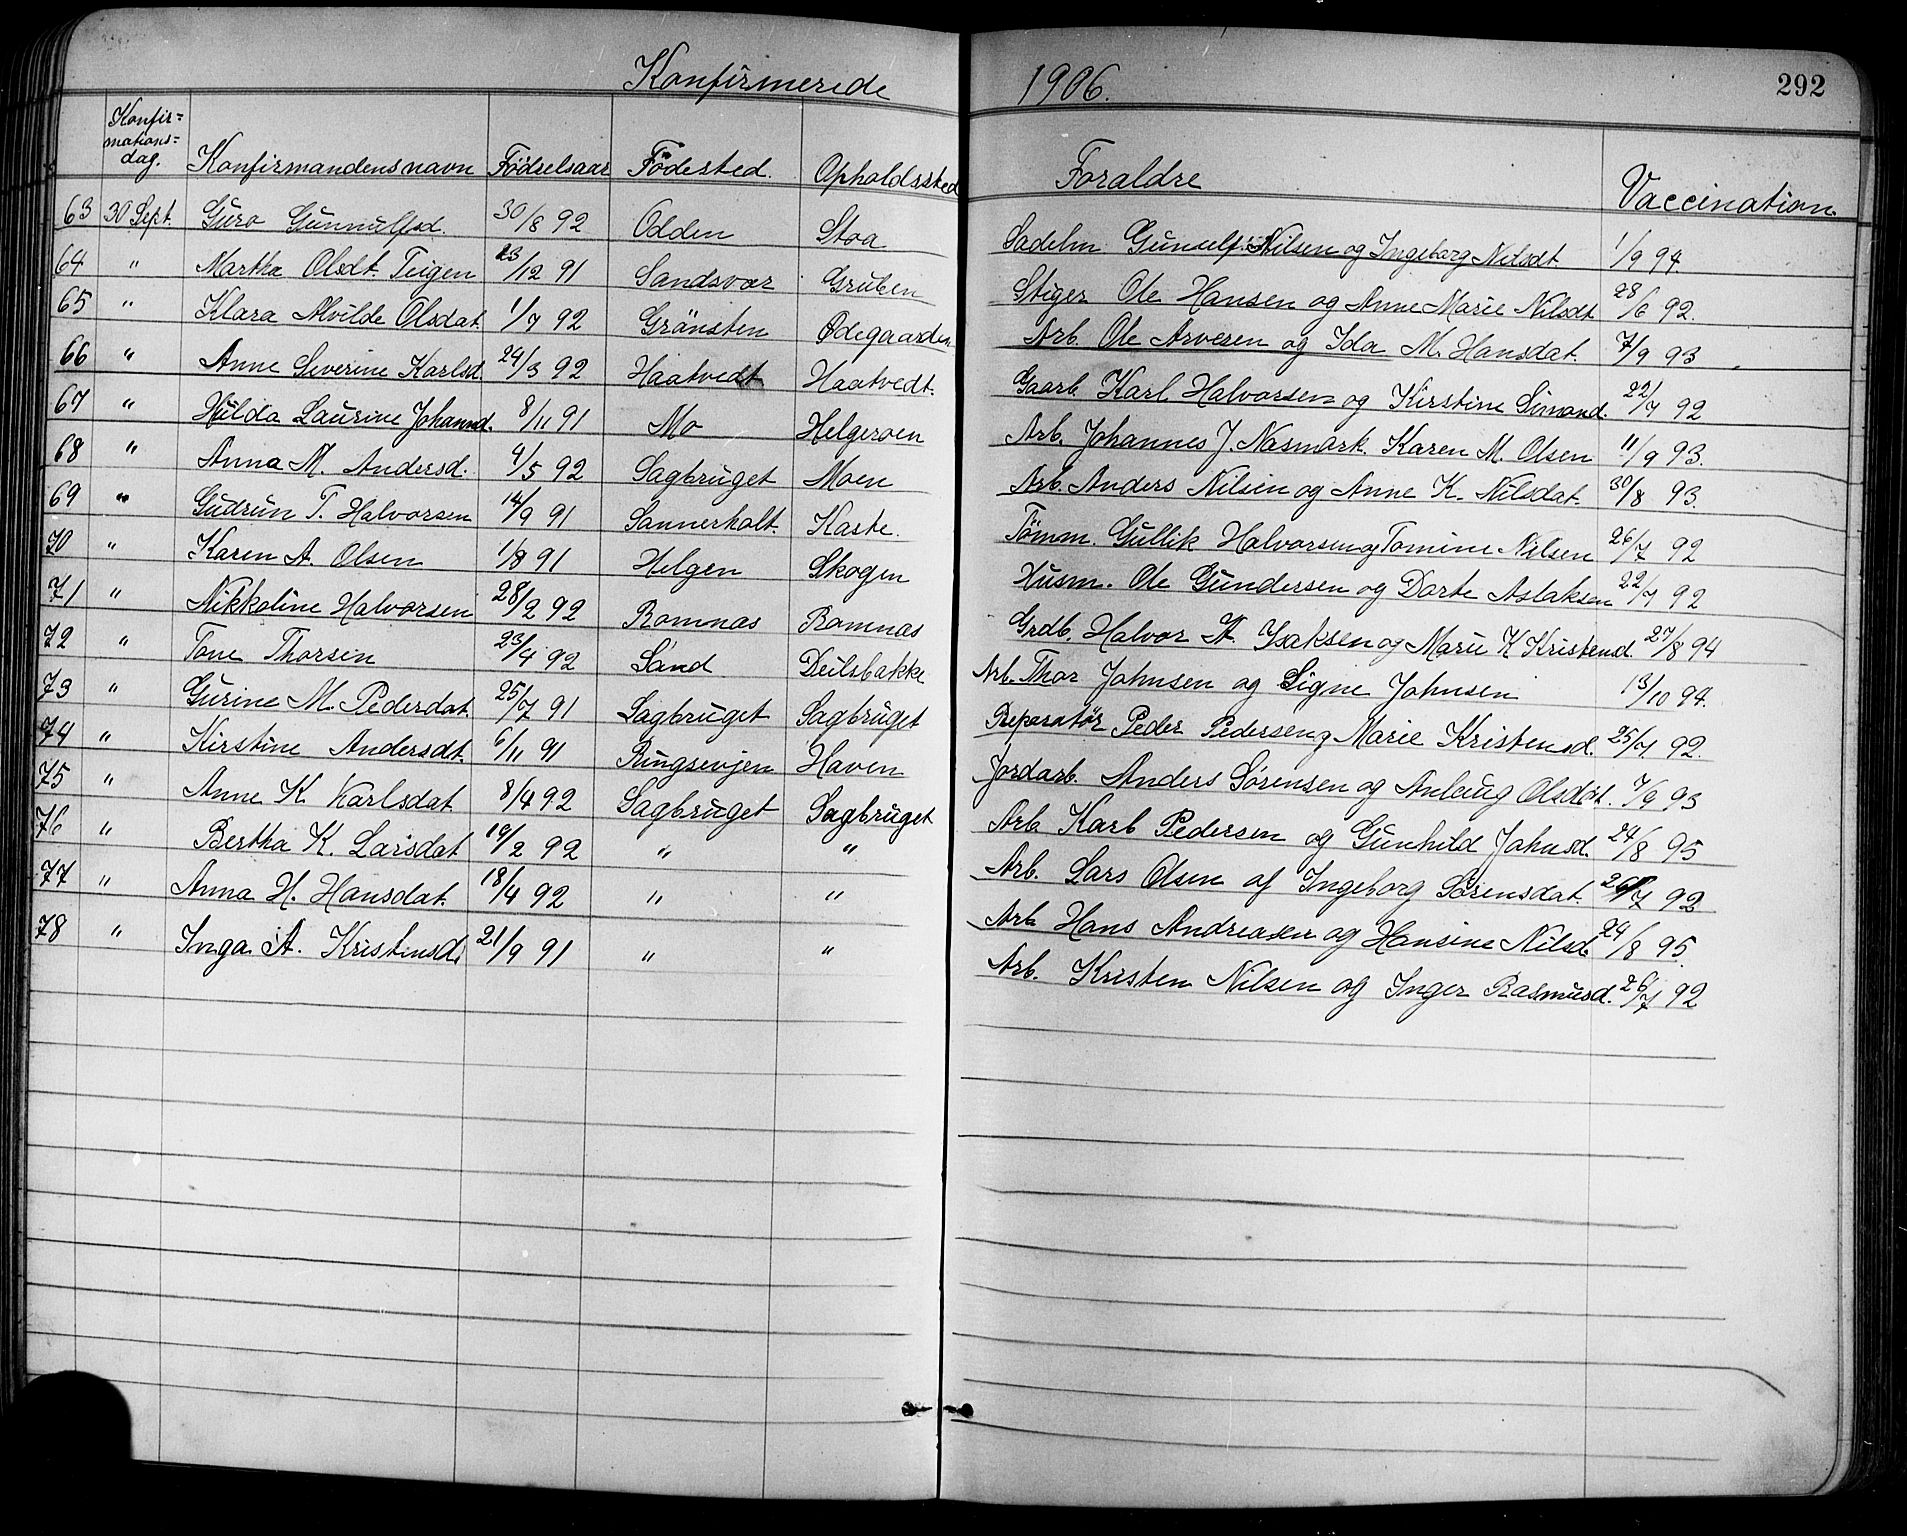 Konfirmerede 1906. 292
Konfir= mations= dag. Konfirmandens navn Födselsaar Födested. Opholdssted Foraldre Vaccination.
63 30 Sept. Guro Gunnulfsd. 30/8 92 Odden Stoa Sadelm. Gunulf Nilsen og Ingeborg Nilsdt. 1/9 94
64 " Martha Olsdt. Teigen 23/12 91 Sandsvær Gruben Stiger Ole Hansen og Anne Marie Nilsdt 28/6 92.
65 " Klara Alvilde Olsdat. 1/7 92 Grönsten Ødegaarden Arb. Ole Arvesen og Ida M. Hansdat. 7/9 93
66 " Anne Severine Karlsd. 24/3 92 Haatvedt Haatvedt. Gaarb. Karl Halvorsen og Kirstine Simond. 22/7 92
67 " Hulda Laurine Johannd. 8/11 91 Mo Helgeroen Arb. Johannes J. Nasmark. Karen M. Olsen 11/9 93.
68 " Anna M. Andersd. 4/5 92 Sagbruget Moen Arb. Anders Nilsen og Anne K. Nilsdat. 30/8 93.
69 " Gudrun T. Halvorsen 14/9 91 Sannerholt. Kaste. Tömm. Gullik Halvorsen og Tomine Nilsen 26/7 92
70 " Karen A. Olsen 1/8 91 Helgen Skogen Husm. Ole Gundersen og Dorte Aslaksen 22/7 92
71 " Nikkoline Halvorsen 28/2 92 Romnas Romnas Grdb. Halvor A. Isaksen og Marie K Kristensd. 27/8 94
72 " Tone Thorsen 23/4 92 Sand Deilsbakke Arb. Thor Johnsen og Signe Johnsen 13/10 94.
73 " Gurine M. Pedersdat. 25/7 91 Sagbruget Sagbruget Reparatör Peder Pedersen og Marie Kristensd. 25/7. 92.
74 " Kirstine Andersdt. 6/11 91 Ringsevjen Haven Jordarb. Anders Sörensen og Anlaug Olsdat. 7/9 93
75 " Anne K. Karlsdat 8/4 92 Sagbruget Sagbruget Arb. Karl Pedersen og Gunhild Johnsd. 24/8 95
76 " Bertha K. Larsdat 19/2 92 " " Arb. Lars Olsen af Ingeborg Sörensdat. 26/7 92
77 " Anna H. Hansdat. 18/4 92 " " Arb. Hans Andreasen og Hansine Nilsd. 24/8 95.
78 " Inga A. Kristensd. 21/9 91 " " Arb. Kristen Nilsen og Inger Rasmusd. 26/7 92